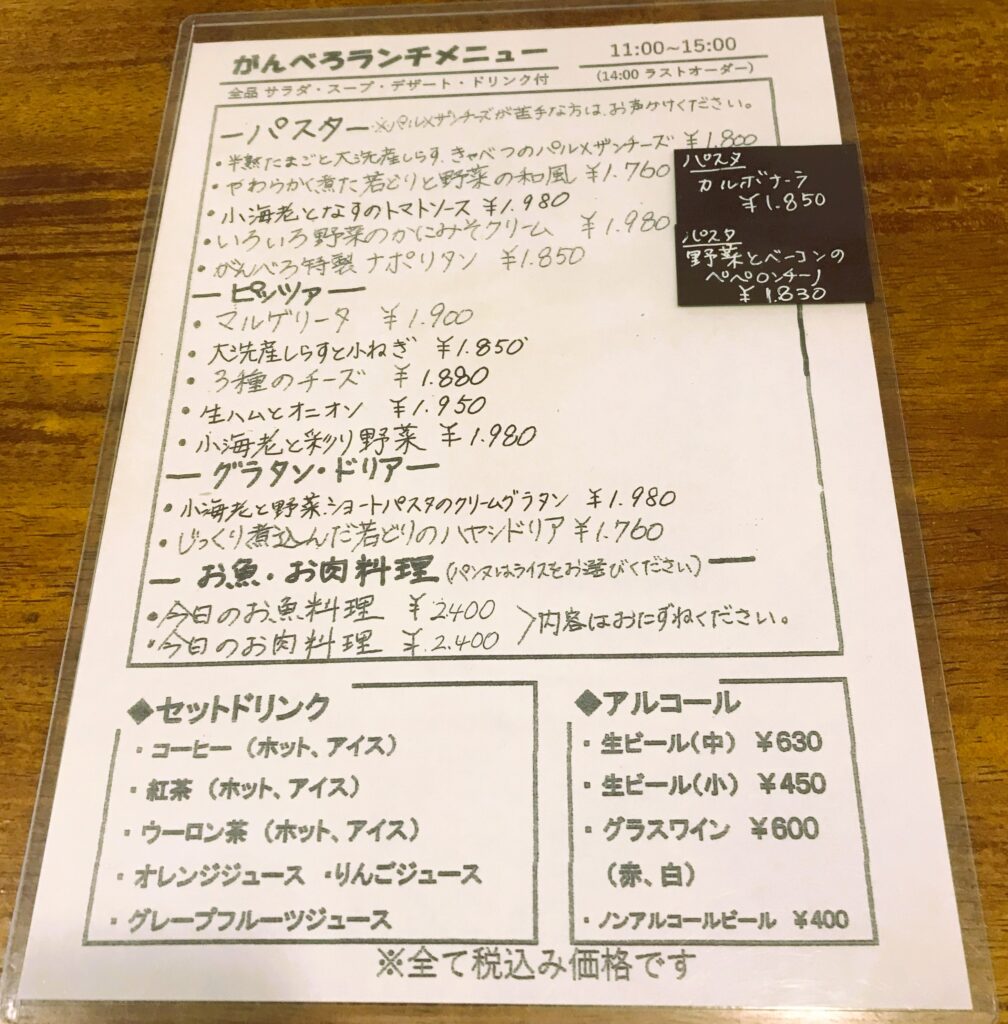 がんべろランチメニュー
11:00~15:00
全品 サラダ・スープ・デザート・ドリンク付
(14:00 ラストオーダー)
ーパスター ※パルメザンチーズが苦手な方は、お声がけください。
・半熟たまごと大洗産しらす、きゃべつのパルメザンチーズ ¥1.800
・やわらかく煮た若どりと野菜の和風 ¥1.760
・小海老となすのトマトソース ¥1.980
・いろいろ野菜のかにみそクリーム ¥1.980
・がんべろ特製ナポリタン ¥1.850
パスタ
カルボナーラ
¥1.850
パスタ
野菜とベーコンの
ペペロンチーノ
¥1.830
ーピッツァー
・マルゲリータ ¥1.900
・大洗産しらすと小ねぎ ¥1.850
・3種のチーズ ¥1.880
・生ハムとオニオン ¥1.950
・小海老と彩り野菜 ¥1.980
ーグラタン・ドリアー
・小海老と野菜、ショートパスタのクリームグラタン ¥1.980
・じっくり煮込んだ若どりのハヤシドリア ¥1.760
ーお魚・お肉料理(パンorライスをお選びください)ー
・今日のお魚料理 ¥2400
・今日のお肉料理 ¥2.400
〉内容はおたずねください。
◆セットドリンク
・コーヒー(ホット、アイス)
・紅茶(ホット、アイス)
・ウーロン茶(ホット、アイス)
・オレンジジュース ・りんごジュース
・グレープフルーツジュース
◆アルコール
・生ビール(中) ¥630
・生ビール(小) ¥450
・グラスワイン ¥600
(赤、白)
・ノンアルコールビール ¥400
※全て税込み価格です